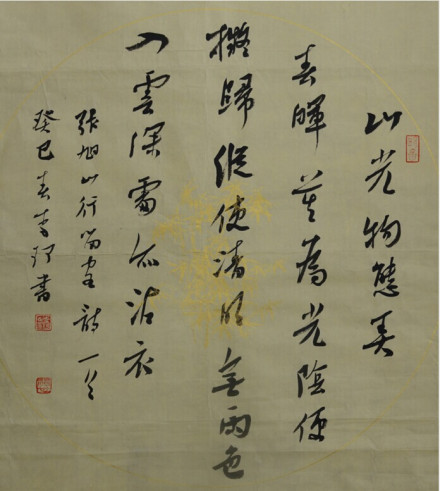 山光物態美
春暉莫為光陰便
擬歸縱使清明無雨色
入雲深處亦沾衣
張旭山行留客詩一首
癸巳春李書